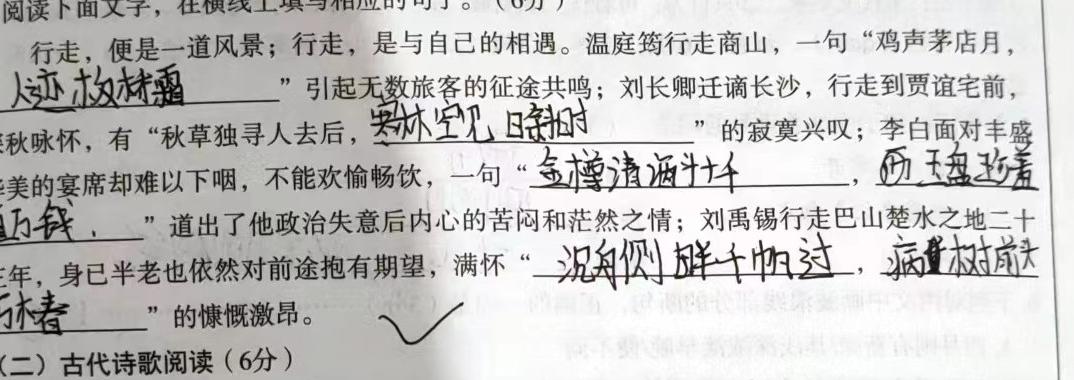 阅读下面文字，在横线上填写相应的句子。（6分）
行走，便是一道风景；行走，是与自己的相遇。温庭筠行走商山，一句“鸡声茅店月，
人迹板桥霜”引起无数旅客的征途共鸣；刘长卿迁谪长沙，行走到贾谊宅前，
秋咏怀，有“秋草独寻人去后，寒林空见日斜时”的寂寞兴叹；李白面对丰盛
美的宴席却难以下咽，不能欢愉畅饮，一句“金樽清酒斗十千，玉盘珍羞
直万钱。”道出了他政治失意后内心的苦闷和茫然之情；刘禹锡行走巴山楚水之地二十
三年，身已半老也依然对前途抱有期望，满怀“沉舟侧畔千帆过，病树前头
万木春”的慷慨激昂。
（二）古代诗歌阅读（6分）